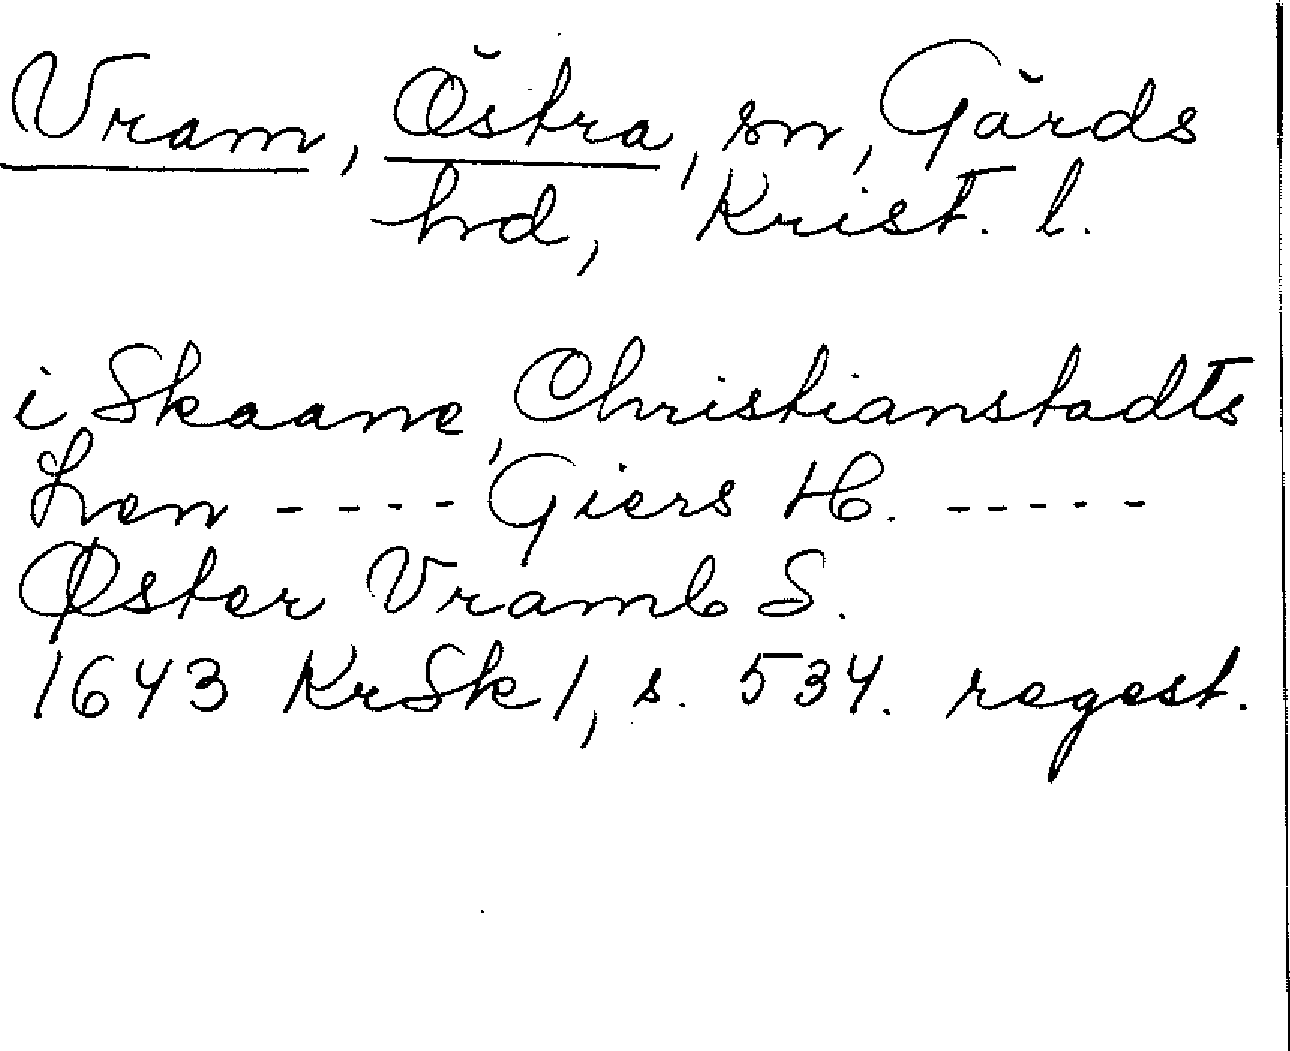 Vram, Östra, sn, Gärds
hd, Krist. l.
i Skaane, Christianstadts
Len - - - - Giers H. - - - - -
Øster Vramb S.
1643 KrSk1, s. 534. regest.